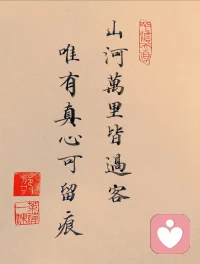 山河萬里皆過客
唯有真心可留痕